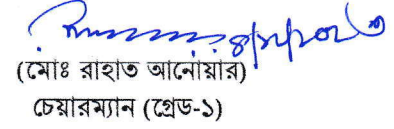 (মোঃ রাহাত আনোয়ার)
চেয়ারম্যান (গ্রেড-১)